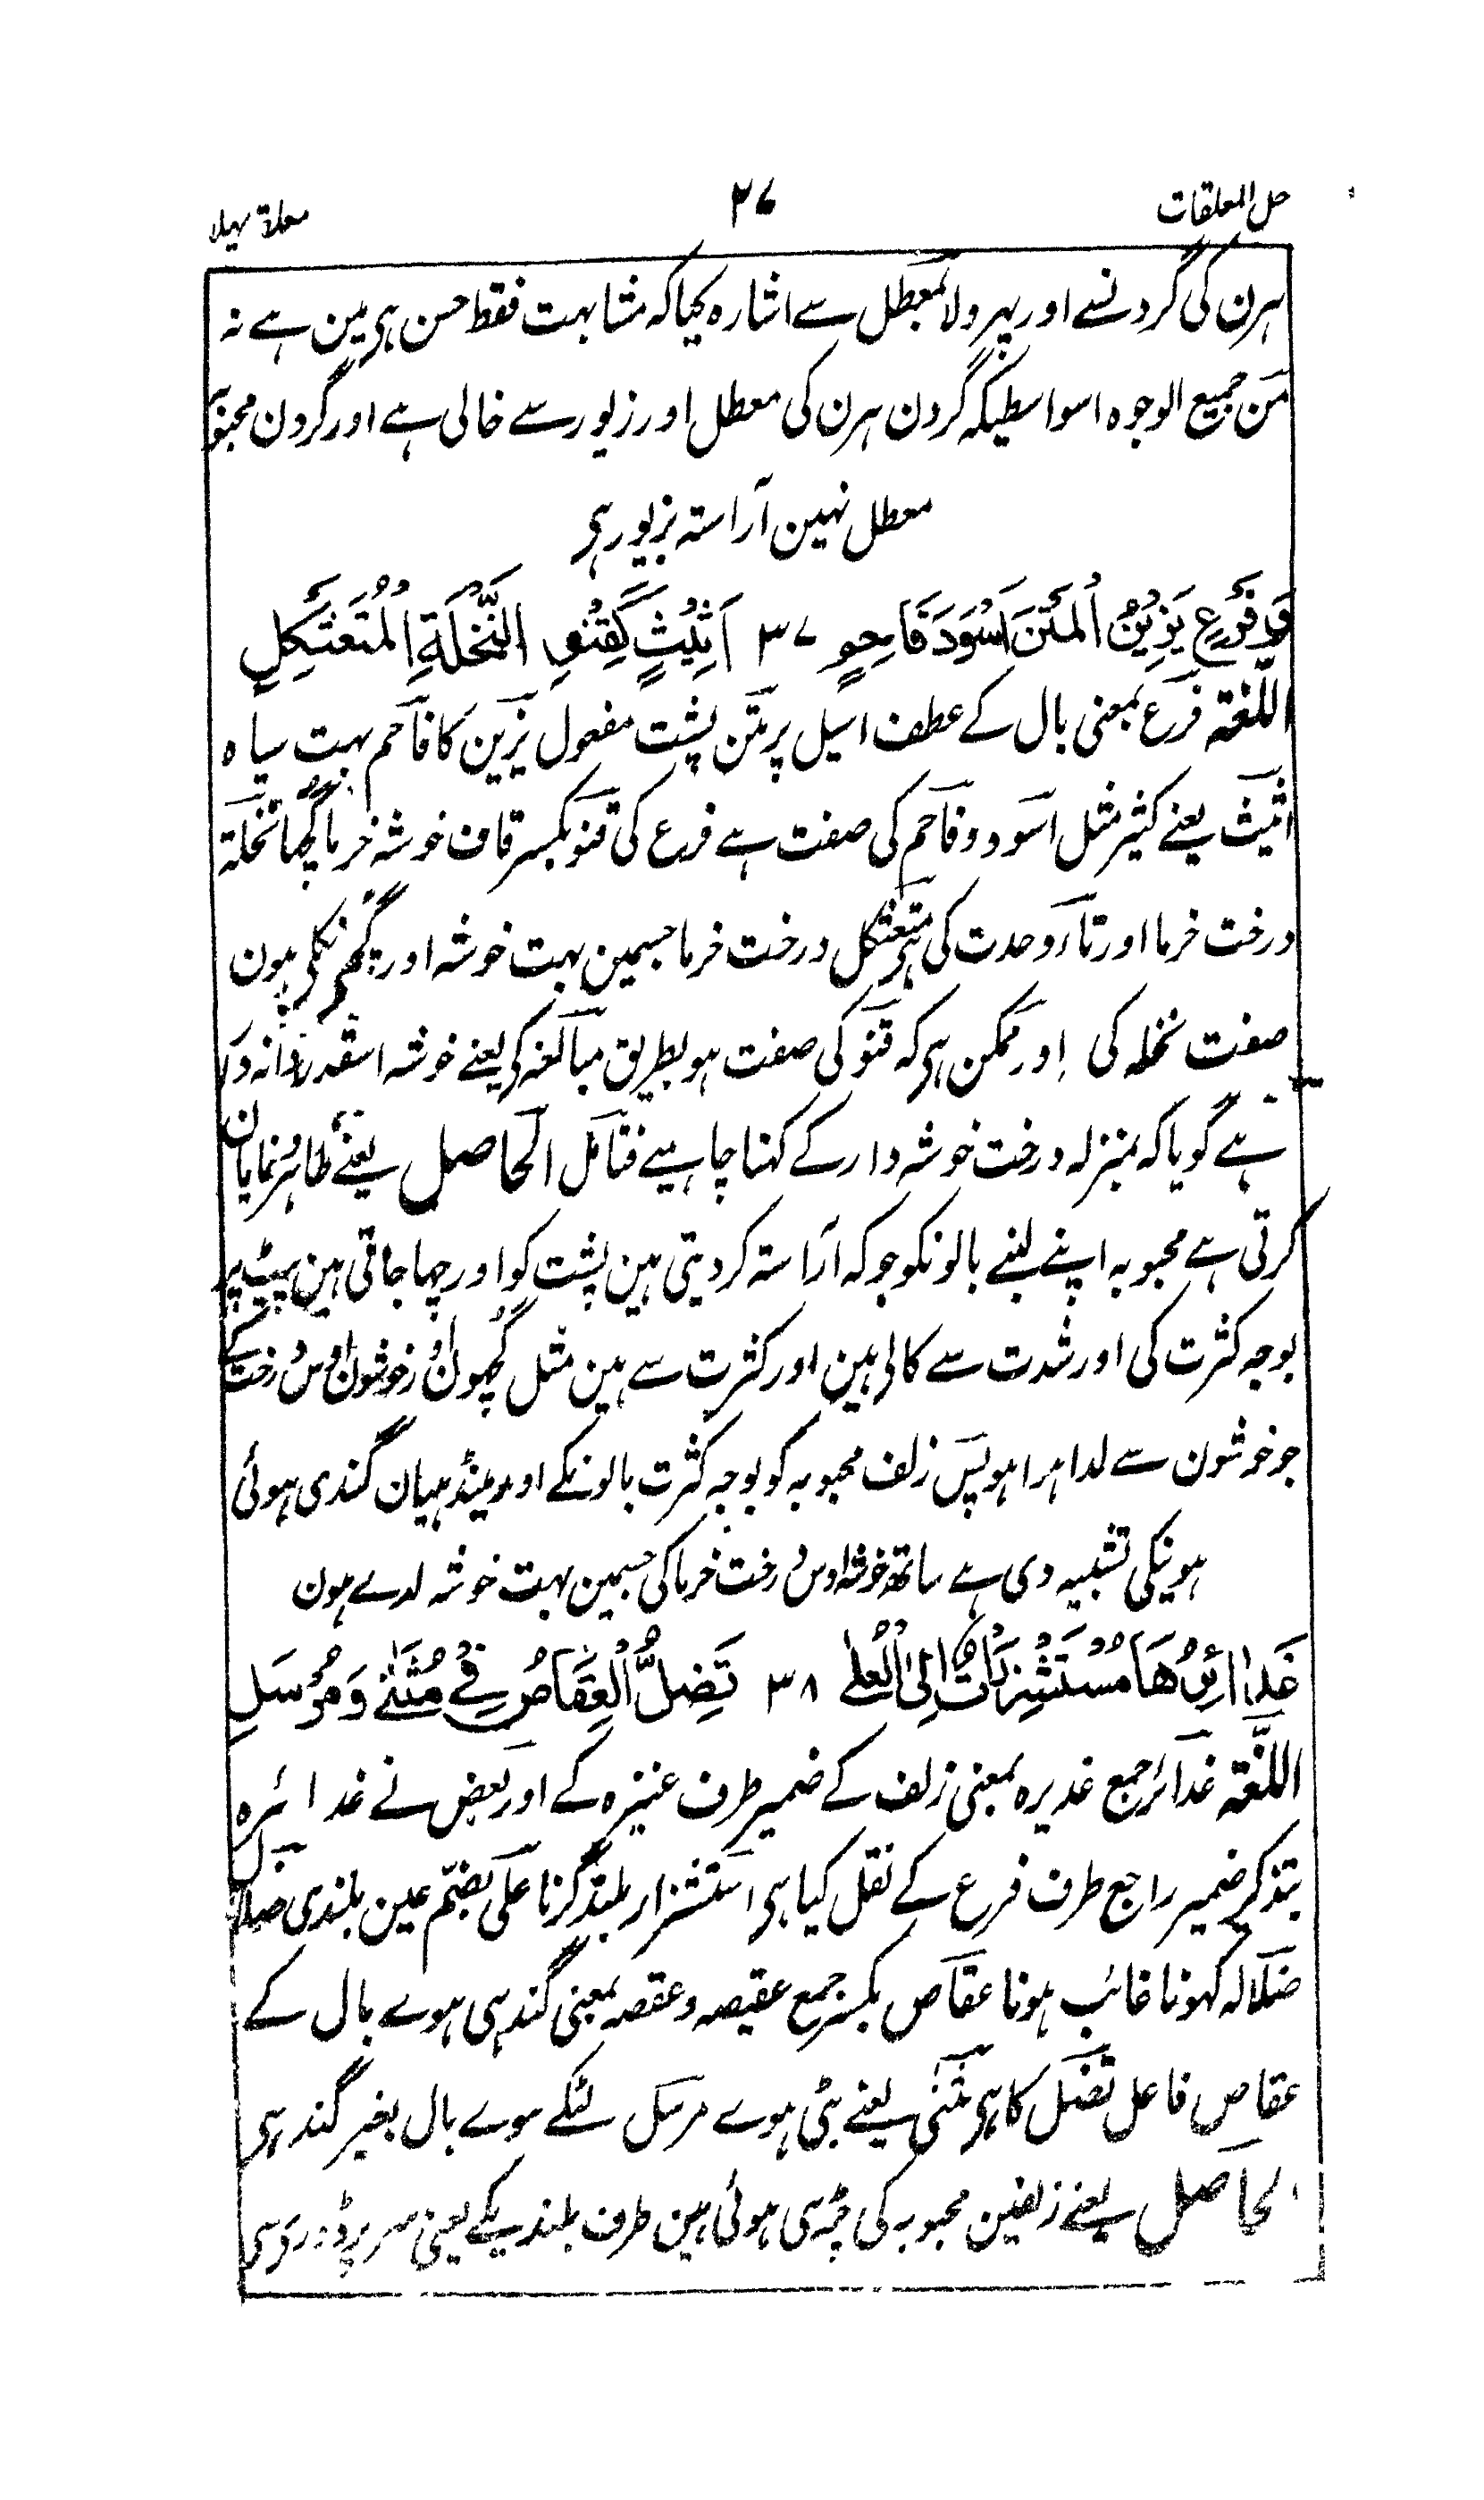 حل المعلقات
۲۷
معلقہ پہلا
ہرن کی گردنسے اور پہر ولا بمعطل سے اشارہ کیا کہ مشابہت فقط حسن ہی مین ہے نہ
من جمیع الوجوہ اسواسطیکہ گردن ہرن کی معطل اور زیور سے خالی ہے اور گردن محبوبہ
معطل نہین آراستہ بزیور ہی
وَفَرْعٍ يَزِيْنُ الْمَتْنَ اَسْوَدَ فَاحِمٍ ۳۷ اَثِيْثٍ كَقِنْوِ النَّخْلَةِ الْمُتَعَثْكِلِ
اللغۃ فرع بمعنی بال کے عطف اسیل پر متن پشت مفعول یزین کا فاحم بہت سیاہ
اثیث یعنے کثیر مثل اسود و فاحم کی صفت ہے فرع کی قنو بکسر قاف خوشہ خرما گچھا نخلۃ
درخت خرما اور تاء وحدت کی ہی متعثکل درخت خرما جسمین بہت خوشہ اور گچھی نکلی ہون
صفت نخلہ کی اور ممکن ہی کہ قنو کی صفت ہو بطریق مبالغہ کی یعنے خوشہ اسقدر دانہ دار
ہے گویا کہ بمنزلہ درخت خوشہ دار کے کہنا چاہیے فتامل الحاصل یعنے ظاہر و نمایان
کرتی ہے محبوبہ اپنے لنبے بالونکو جو کہ آراستہ کردیتی ہین پشت کو اور چہا جاتی ہین پیٹ پر
بوجہ کثرت کی اور شدت سے کالی ہین اور کثرت سے ہین مثل گچھون و خوشون اوس درخت کے
جو خوشون سے لدا ہرا ہو پس زلف محبوبہ کو بوجہ کثرت بالونکے اور مینڈہیان گندی ہوئی
ہونیکی تشبیہ دی ہے ساتھ خوشہ اوس درخت خرما کی جسمین بہت خوشہ لدے ہون
غَدَائِرُهَا مُسْتَشْزِرَاتٌ اِلَى الْعُلٰى ۳۸ تَضِلُّ الْعِقَاصُ فِيْ مُثَنًّى وَمُرْسَلِ
اللغۃ غدائر جمع غدیرہ بمعنی زلف کے ضمیر طرف عنیزہ کے اور بعض نے غدائرہ
بتذکیر ضمیر راجع طرف فرع کے نقل کیا ہی استشزار بلند کرنا علی بضم عین بلندی ضلال
ضلالہ کہونا غائب ہونا عقاص بکسر جمع عقیصہ و عقصہ بمعنی گندہی ہوے بال کے
عقاص فاعل تضل کا ہی مثنی یعنے بٹی ہوے مرسل لٹکے ہوے بال بغیر گندہی
لحاصل یعنے زلفین محبوبہ کی چڑہی ہوئی ہین طرف بلندیکے یعنی سر پر ڈوری سی